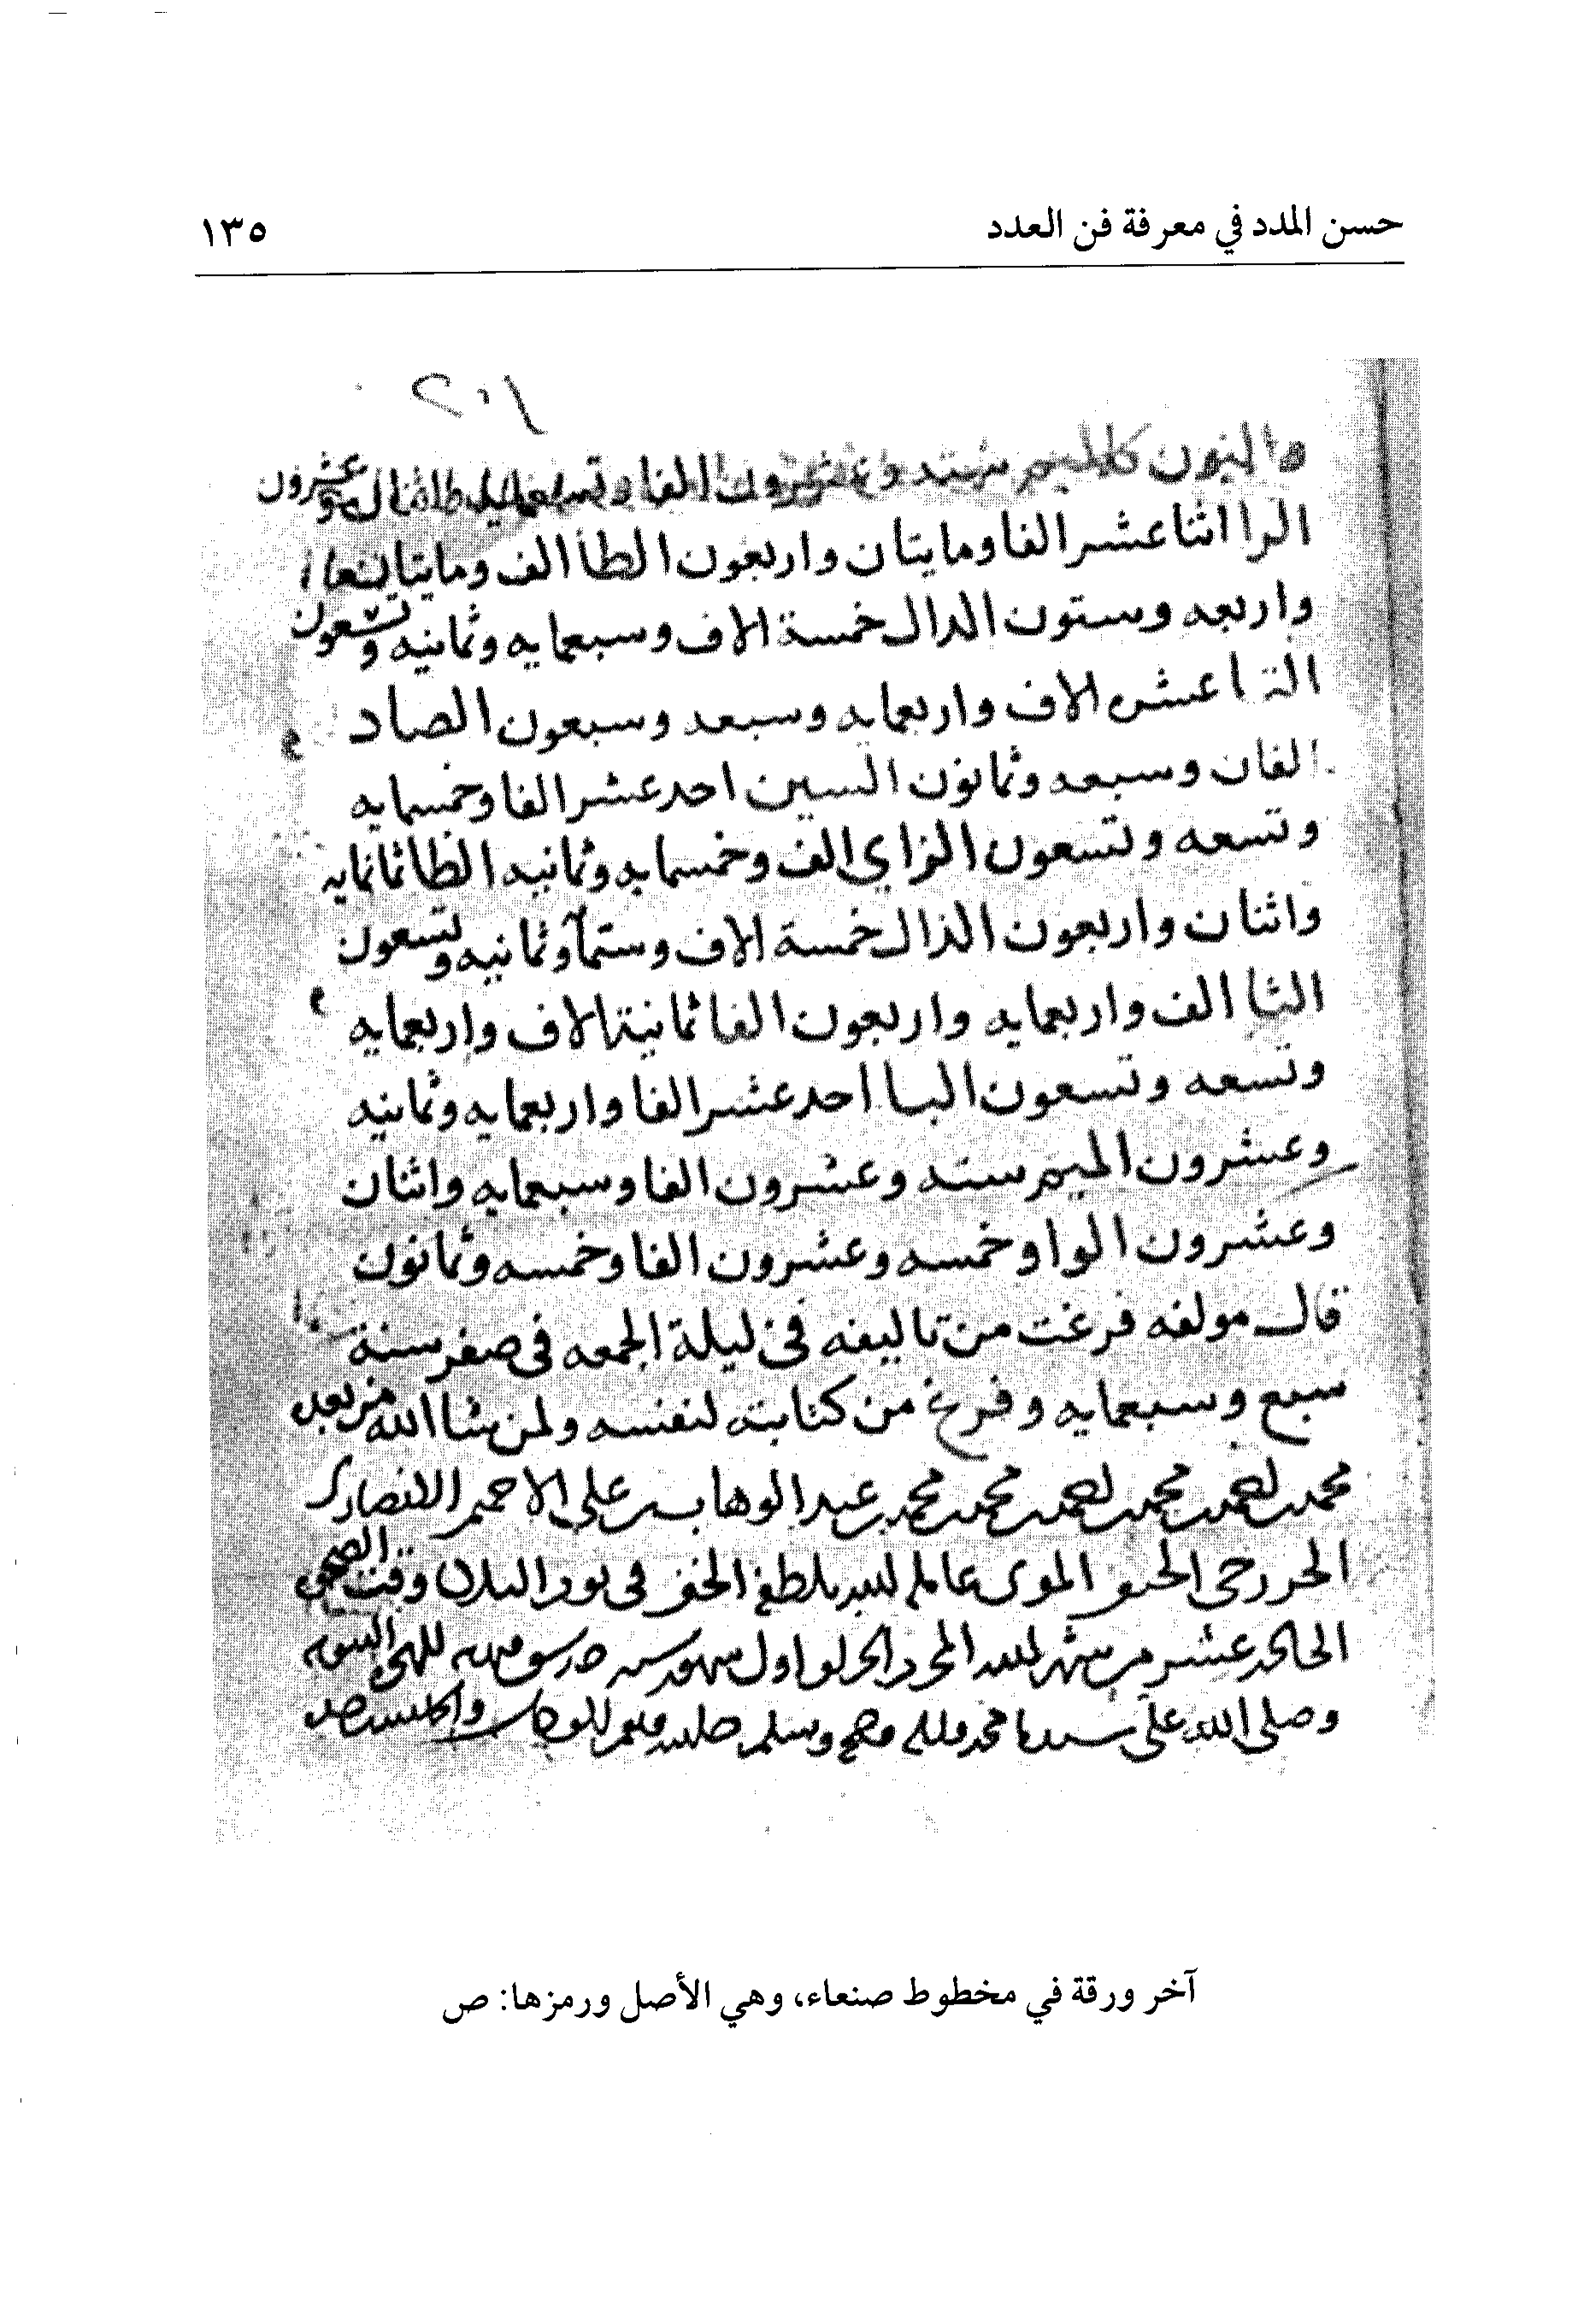 حسن المدد في معرفة فن العدد
١٣٥
والنون كالميم ستة وعشرون الفا وتسعمايه
عشرون
الرا اثنا عشر الفا ومايتان واربعون الطا الف ومايتان
واربعه وستون الدال خمسة الاف وسبعمايه وثمانيه وتسعون
التا عشره الاف واربعمايه وسبعه وسبعون الصاد
الفان وسبعه وثمانون السين احد عشر الفا وخمسمايه
وتسعه وتسعون الزاي الف وخمسمايه وثمانيه الظا ثمانمايه
واثنان واربعون الذال خمسة الاف وستمآ وثمانيه وتسعون
الثا الف واربعمايه واربعون الفا ثمانية الاف واربعمايه
وتسعه وتسعون البا احد عشر الفا واربعمايه وثمانيه
وعشرون الميم سته وعشرون الفا وسبعمايه واثنان
وعشرون الواو خمسه وعشرون الفا وخمسه وثمانون
قال مولفه فرغت من تاليفه في ليلة الجمعه في صفر سنة
سبع وسبعمايه وفرغ من كتابته لنفسه ولمن شا الله من بعده
محمد بن احمد بن محمد بن احمد بن محمد بن محمد بن عبد الوهاب بن علي الاحمر الانصاري
الخزرجي الحنفي
الحادي عشر من شهر
وصلى الله على سيدنا محمد واله وصحبه وسلم
آخر ورقة في مخطوط صنعاء، وهي الأصل ورمزها: ص